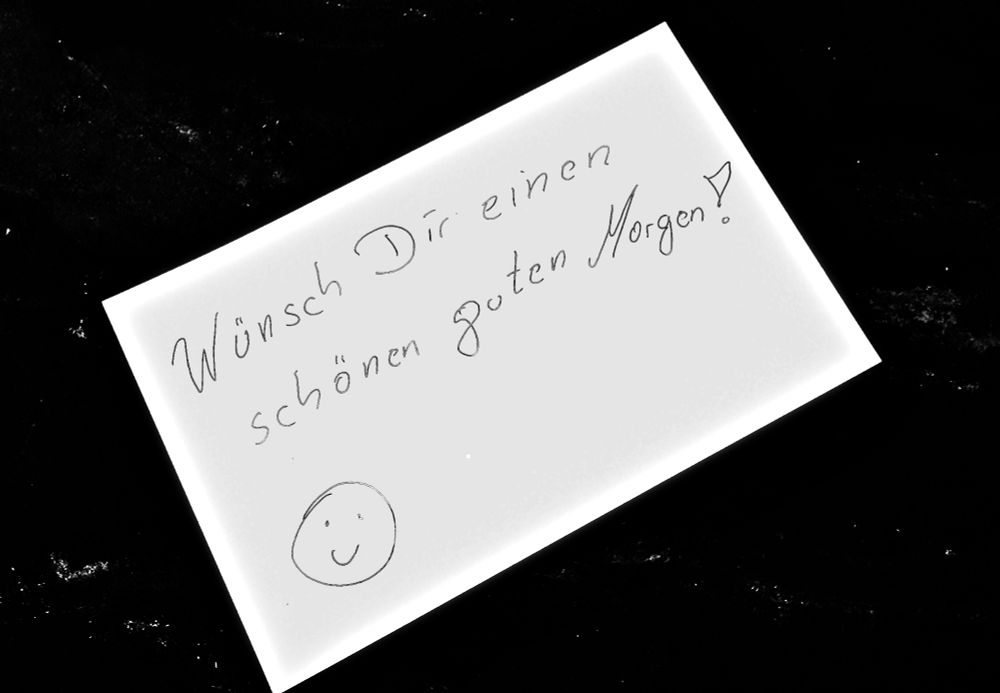 Wünsch Dir einen
schönen guten Morgen!